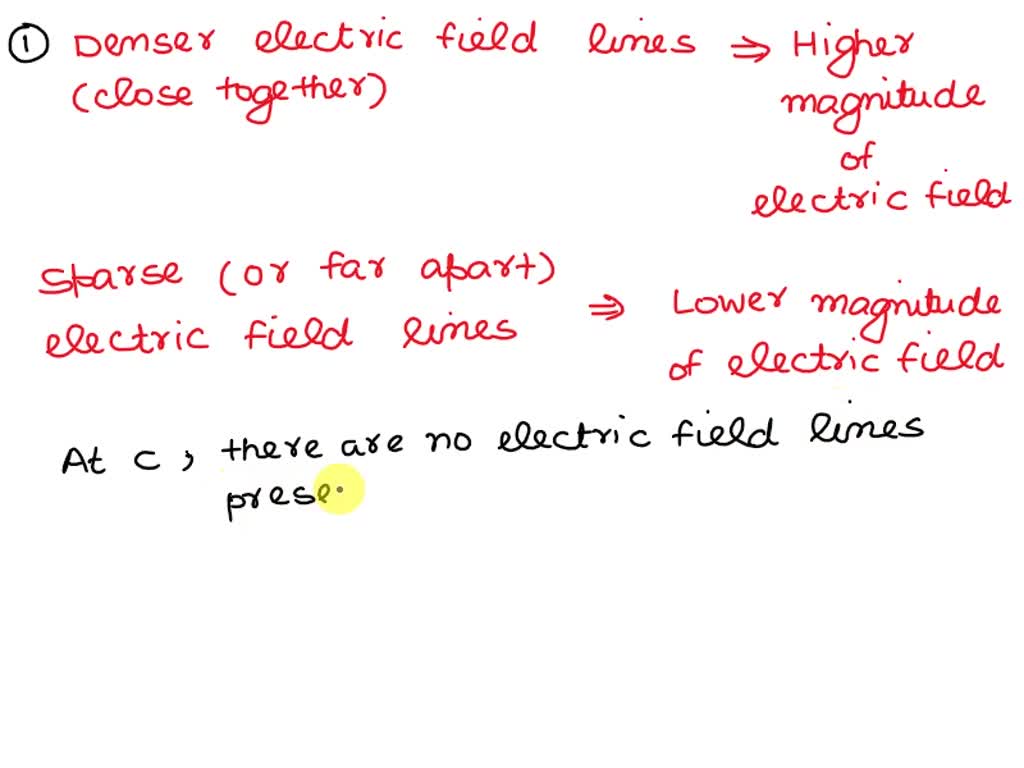 ① Denser electric field lines ⇒ Higher
(close together) magnitude
of
electric field
Sparse (or far apart)
electric field lines ⇒ Lower magnitude
of electric field
At c, there are no electric field lines
prese